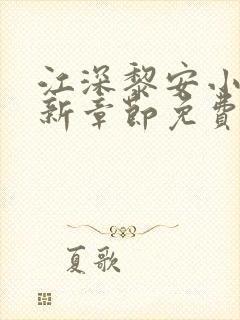 江深黎安小
新章节免费
夏歌